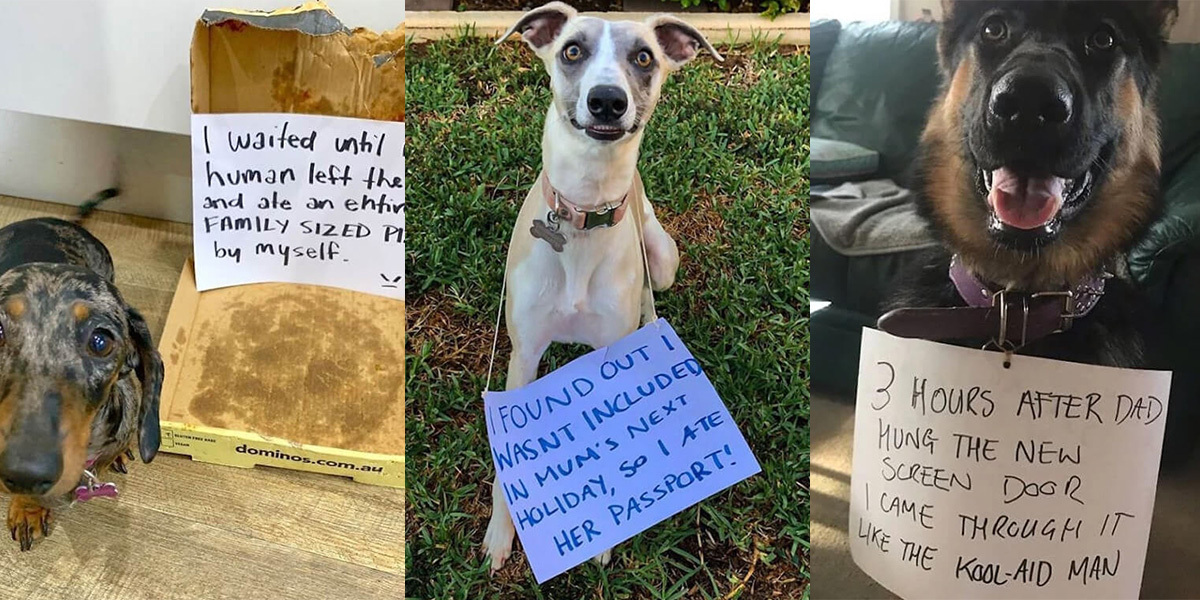 I waited until
human left the
and ate an
FAMILY SIZED
by myself.
dominos.com.au
I FOUND OUT I
WASNT INCLUDED
IN MUM'S NEXT
HOLIDAY, SO I ATE
HER PASSPORT!
3 HOURS AFTER DAD
HUNG THE NEW
SCREEN DOOR
I CAME THROUGH IT
LIKE THE KOOL-AID MAN